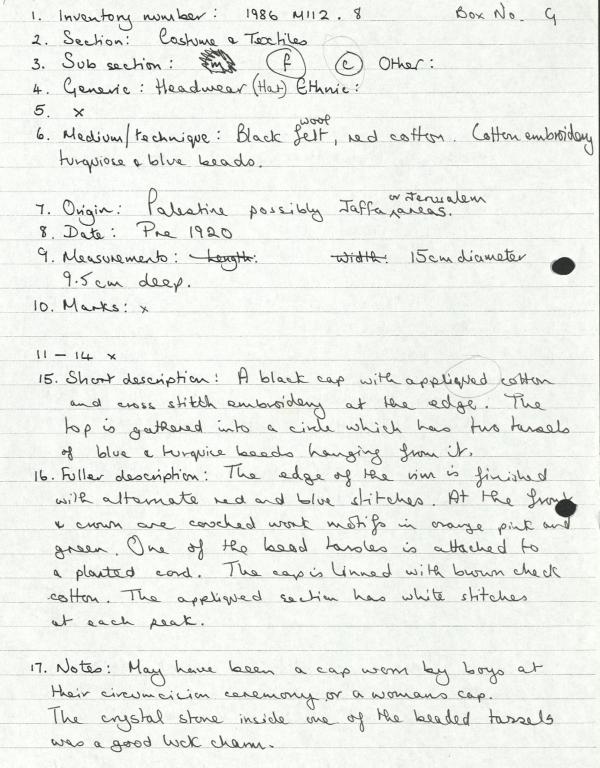 1. Inventory number: 1986 M112.8 Box No. G
2. Section: Costume & Textiles
3. Sub section: m f c Other:
4. Generic: Headwear (Hat) Ethnic:
5. x
6. Medium/technique: Black wool felt, red cotton. Cotton embroidery
turquiose & blue beads.
7. Origin: Palestine possibly Jaffa or Jerusalem areas.
8. Date: Pre 1920
9. Measurements: Length: Width: 15cm diameter
9.5cm deep.
10. Marks: x
11 - 14 x
15. Short description: A black cap with appliqued cotton
and cross stitch embroidery at the edge. The
top is gathered into a circle which has two tassels
of blue & turquise beads hanging from it.
16. Fuller description: The edge of the rim is finished
with alternate red and blue stitches. At the front
& crown are couched work motifs in orange pink and
green. One of the bead tassles is attached to
a planted cord. The cap is linned with brown check
cotton. The appliqued section has white stitches
at each peak.
17. Notes: May have been a cap worn by boys at
their circumcision ceremony or a womans cap.
The crystal stone inside one of the beaded tassels
was a good luck charm.